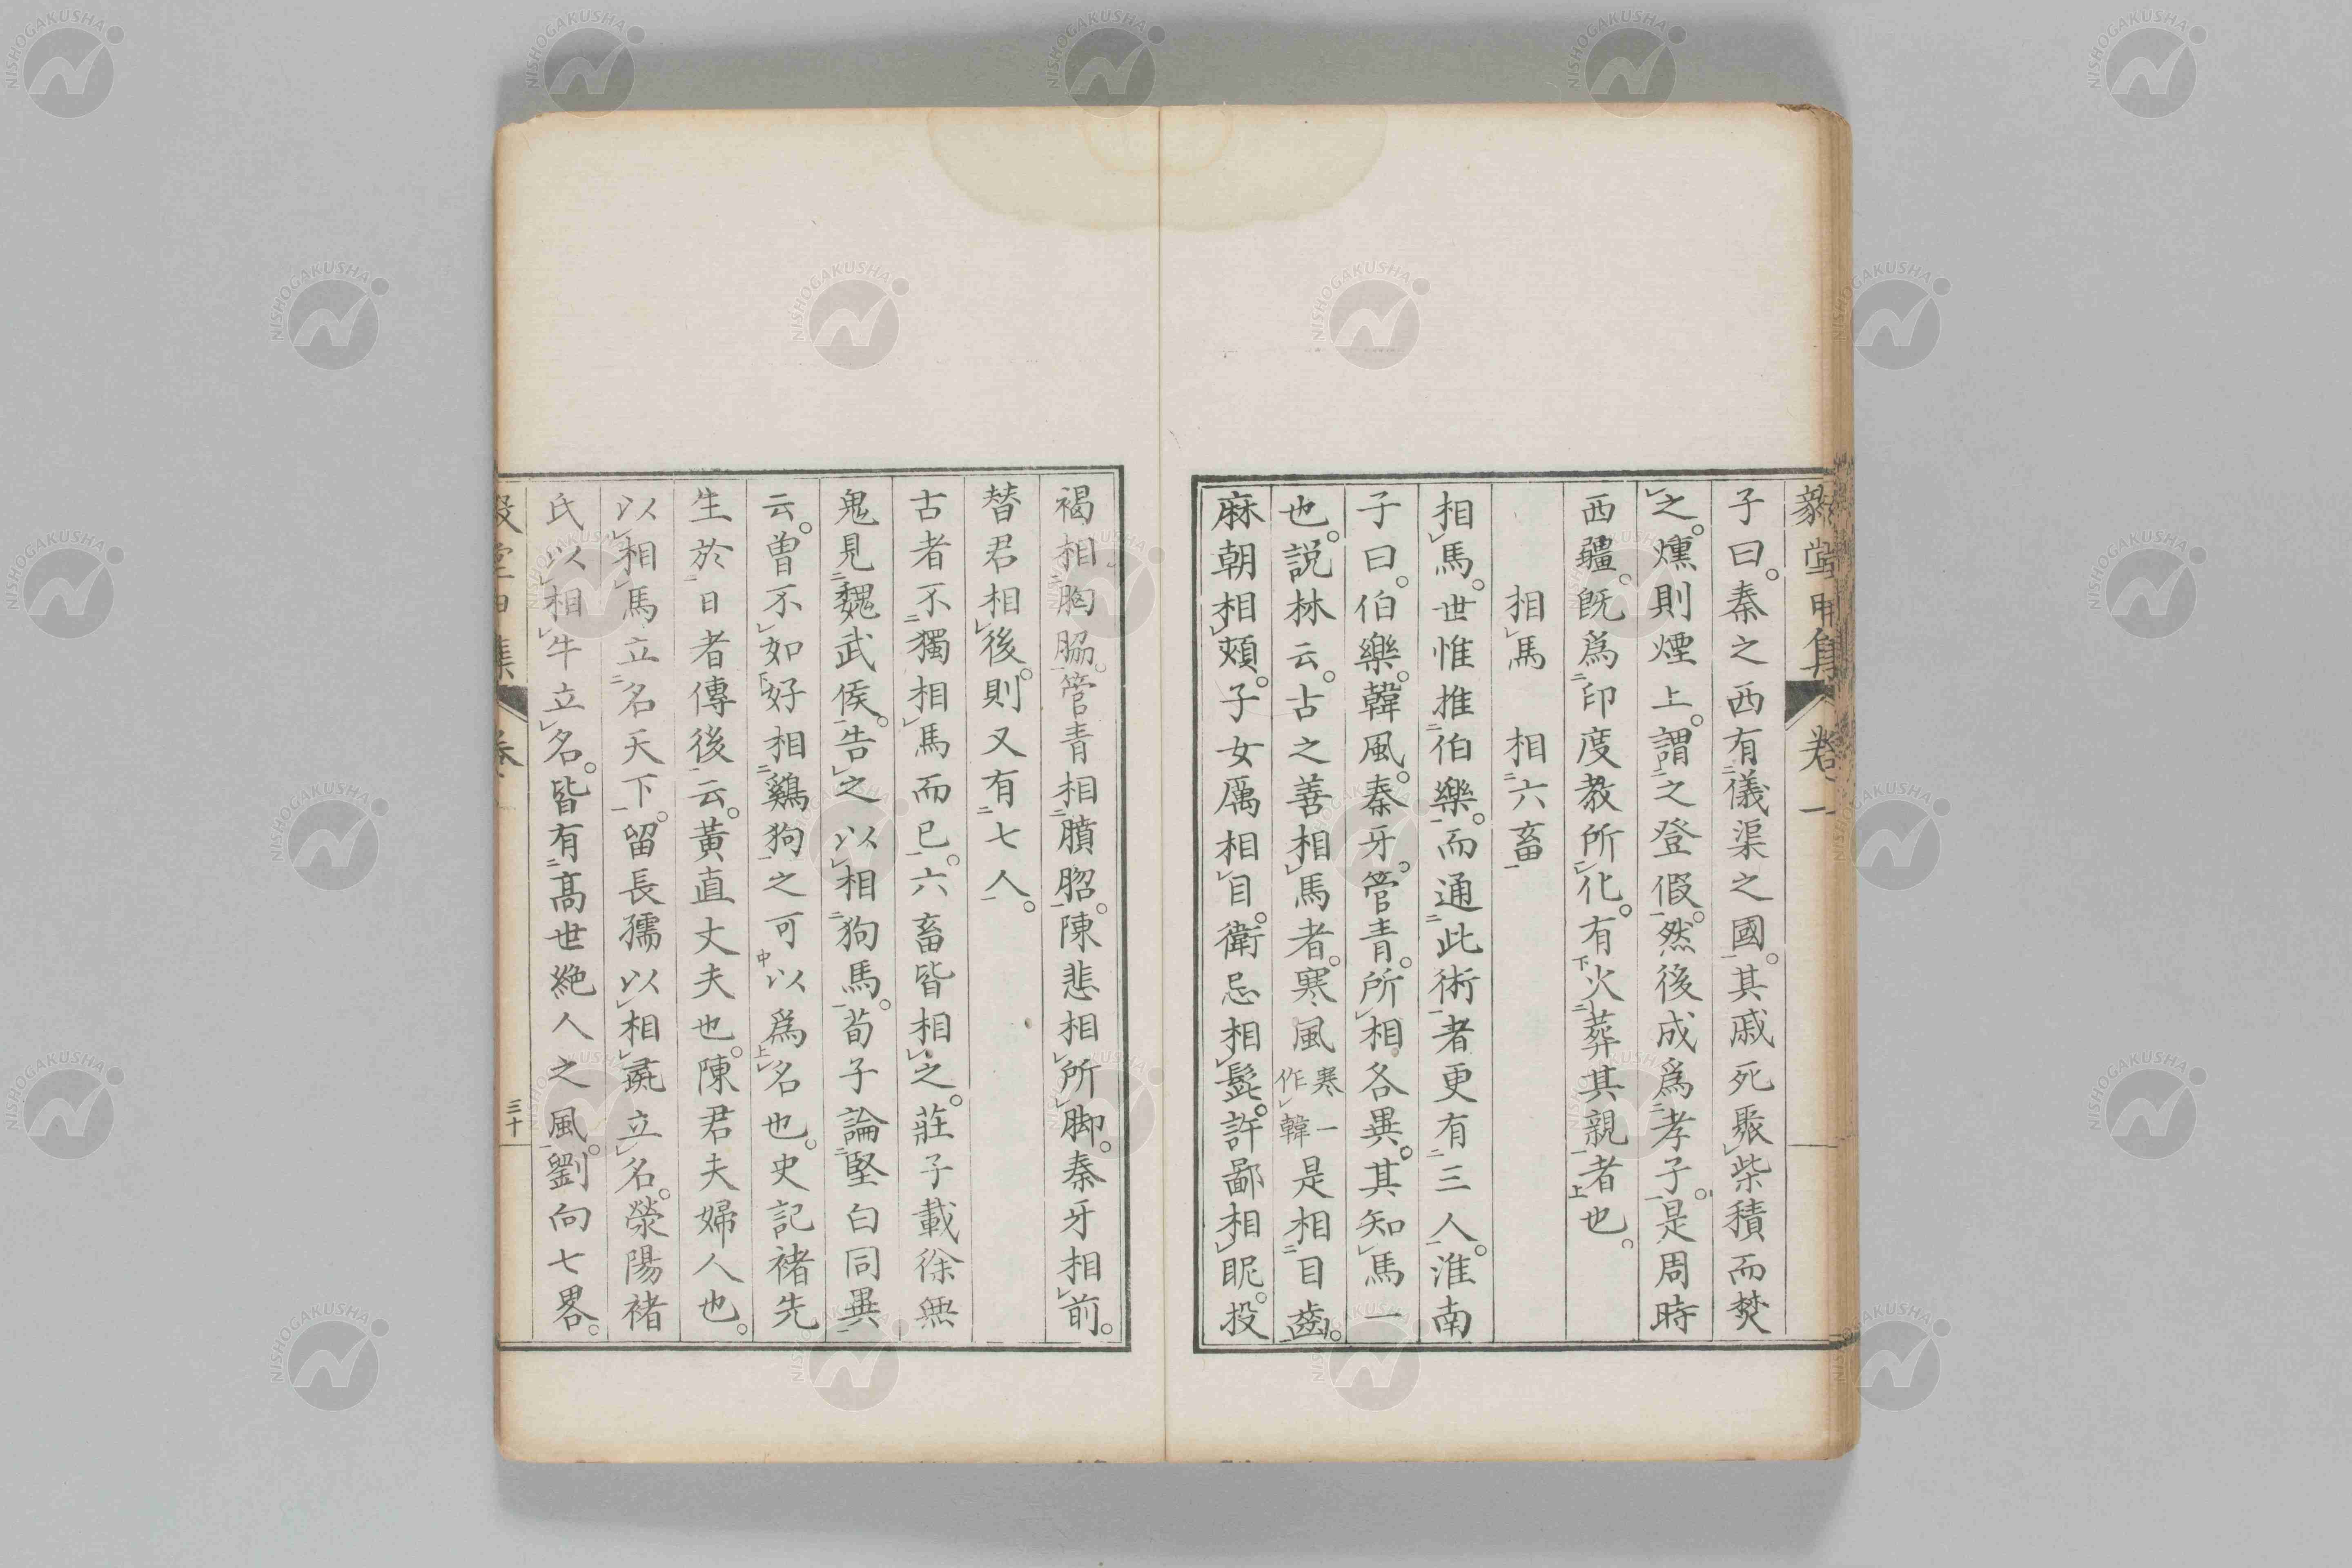 毅堂甲集 卷一
子曰。秦之西有儀渠之國。其戚死聚柴積而焚
之。燻則煙上。謂之登假。然後成爲孝子。是周時
西疆。既爲印度教所化。有火葬其親者也。
相馬 相六畜
相馬。世惟推伯樂。而通此術者更有三人。淮南
子曰。伯樂。韓風。秦牙。管青。所相各異。其知馬一
也。説林云。古之善相馬者。寒風寒一作韓是相目齒。
麻朝相頰。子女厲相目。衛忌相髭。許鄙相眤。投
褐相胸脇。管青相䐣肳。陳悲相所脚。秦牙相前。
替君相後。則又有七人。
古者不獨相馬而已。六畜皆相之。莊子載徐無
鬼見魏武侯。告之以相狗馬。荀子論堅白同異
云。曾不如好相鷄狗之可以爲名也。史記褚先
生於日者傳後云。黃直丈夫也。陳君夫婦人也。
以相馬立名天下。留長孺以相彘立名。滎陽褚
氏以相牛立名。皆有高世絶人之風。劉向七畧。
三十
NISHOGAKUSHA